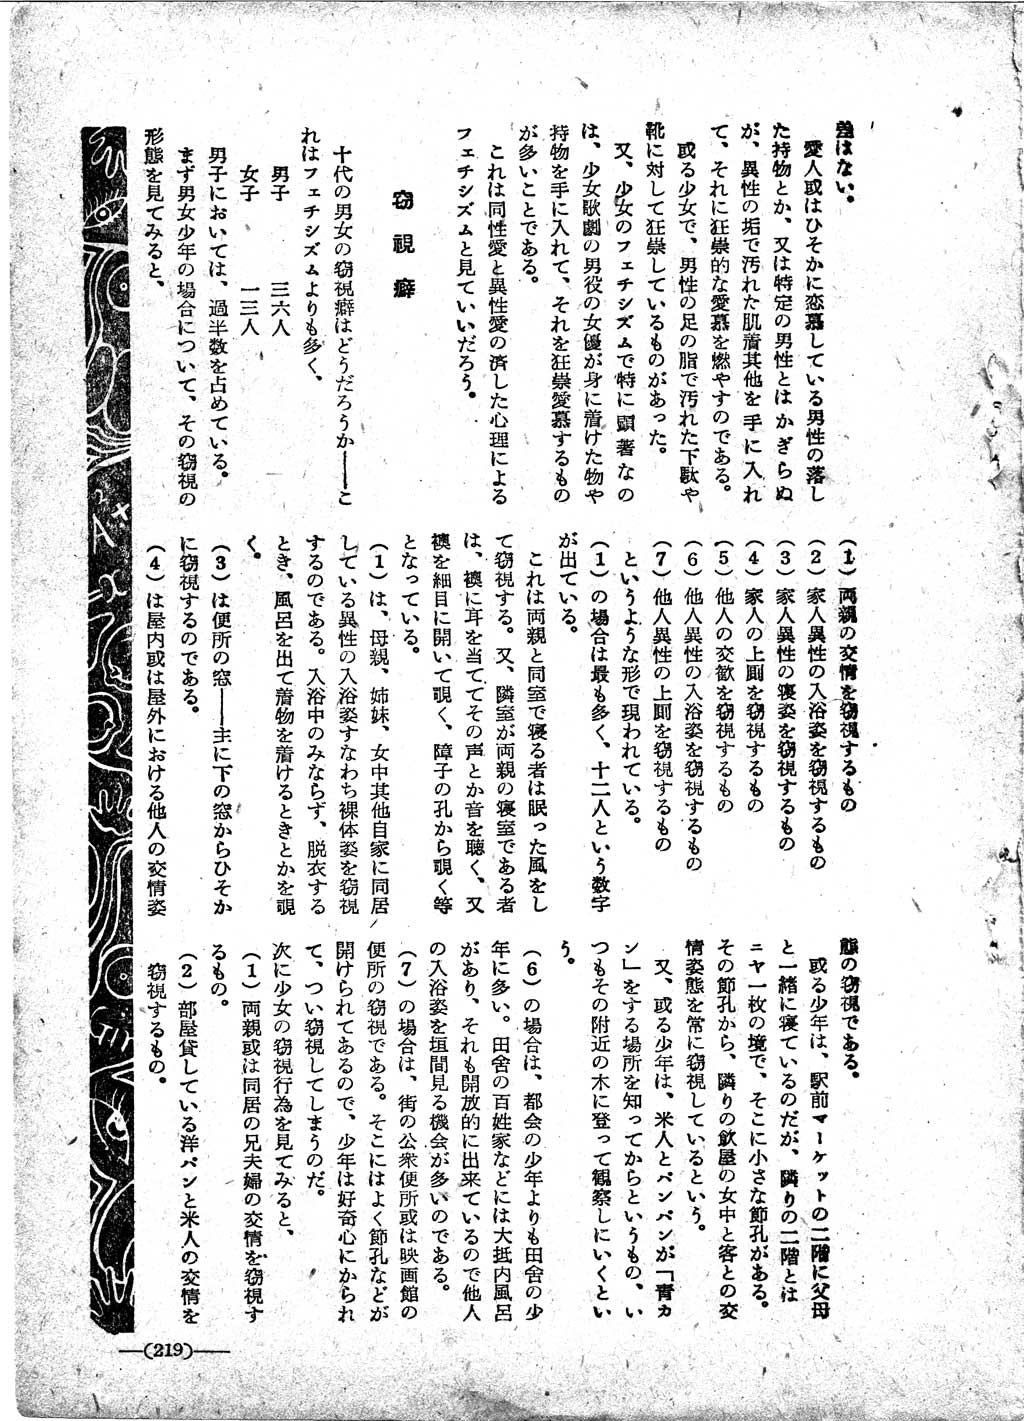 差はない。
愛人或はひそかに恋慕している男性の落し
た持物とか、又は特定の男性とはかぎらぬ
が、異性の垢で汚れた肌着其他を手に入れ
て、それに狂崇的な愛慕を燃やすのである。
或る少女で、男性の足の脂で汚れた下駄や
靴に対して狂崇しているものがあった。
又、少女のフェチシズムで特に顕著なの
は、少女歌劇の男役の女優が身に着けた物や
持物を手に入れて、それを狂崇愛慕するもの
が多いことである。
これは同性愛と異性愛の済した心理による
フェチシズムと見ていいだろう。
窃視癖
十代の男女の窃視癖はどうだろうか――こ
れはフェチシズムよりも多く、
男子　三六人
女子　一三人
男子においては、過半数を占めている。
まず男女少年の場合について、その窃視の
形態を見てみると、
(1) 両親の交情を窃視するもの
(2) 家人異性の入浴姿を窃視するもの
(3) 家人異性の寝姿を窃視するもの
(4) 家人の上厠を窃視するもの
(5) 他人の交歓を窃視するもの
(6) 他人異性の入浴姿を窃視するもの
(7) 他人異性の上厠を窃視するもの
というような形で現われている。
(1)の場合は最も多く、十二人という数字
が出ている。
これは両親と同室で寝る者は眠った風をし
て窃視する。又、隣室が両親の寝室である者
は、襖に耳を当ててその声とか音を聴く、又
襖を細目に開いて覗く、障子の孔から覗く等
となっている。
(1)は、母親、姉妹、女中其他自家に同居
している異性の入浴姿すなわち裸体姿を窃視
するのである。入浴中のみならず、脱衣する
とき、風呂を出て着物を着けるときとかを覗
く。
(3)は便所の窓――主に下の窓からひそか
に窃視するのである。
(4)は屋内或は屋外における他人の交情姿
態の窃視である。
或る少年は、駅前マーケットの二階に父母
と一緒に寝ているのだが、隣りの二階とは
ニヤ一枚の境で、そこに小さな節孔がある。
その節孔から、隣りの飲屋の女中と客との交
情姿態を常に窃視しているという。
又、或る少年は、米人とパンパンが「青カ
ン」をする場所を知ってからというもの、い
つもその附近の木に登って観察しにいくとい
う。
(6)の場合は、都会の少年よりも田舎の少
年に多い。田舎の百姓家などには大抵内風呂
があり、それも開放的に出来ているので他人
の入浴姿を垣間見る機会が多いのである。
(7)の場合は、街の公衆便所或は映画館の
便所の窃視である。そこにはよく節孔などが
開けられてあるので、少年は好奇心にかられ
て、つい窃視してしまうのだ。
次に少女の窃視行為を見てみると、
(1) 両親或は同居の兄夫婦の交情を窃視す
るもの。
(2) 部屋貸している洋パンと米人の交情を
窃視するもの。
(219)